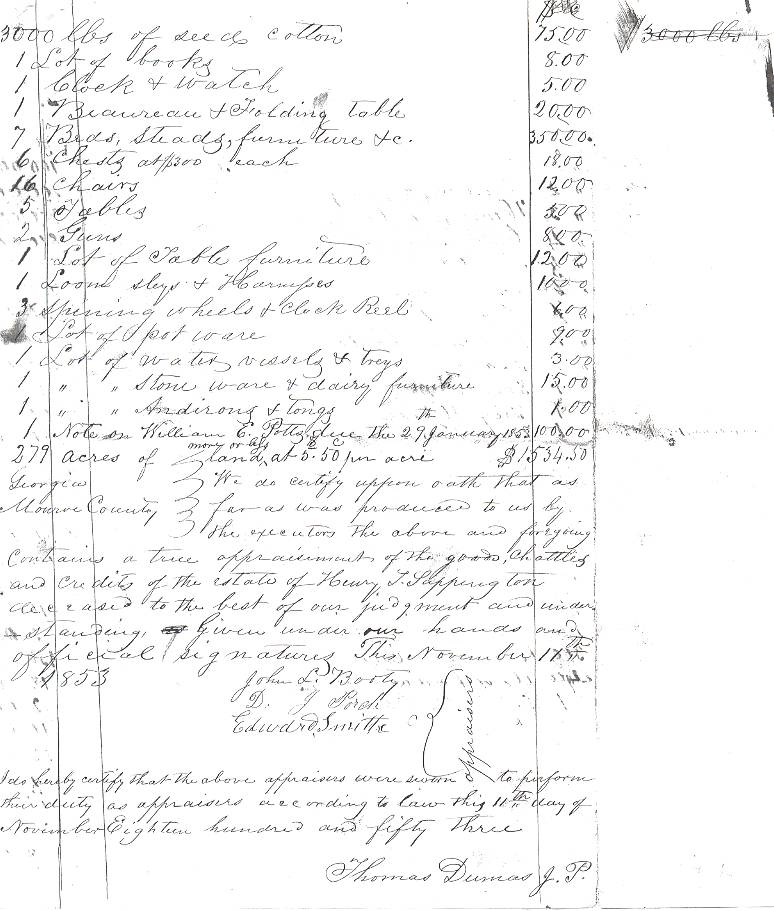 3000 lbs of seed cotton 75.00 3000 lbs
1 Lot of books 8.00
1 Clock & watch 5.00
1 Beaureau & Folding table 20.00
7 Beds, steads, furniture &c. 350.00
6 Chests at $3.00 each 18.00
16 Chairs 12.00
5 Tables 5.00
2 Guns 8.00
1 Lot of Table furniture 12.00
1 Loom sleys & Harnesses 10.00
3 Spinning wheels & Clock Reel 6.00
1 Lot of pot ware 9.00
1 Lot of water vessels & treys 3.00
1 " " Stone ware & dairy furniture 15.00
1 " " Andirons & tongs 1.00
1 Note on William E. Potts due the 29th January 1853 100.00
279 acres of more or less land, at $5.50 per acre $1534.50
Georgia We do certify uppon oath that as
Monroe County far as was produced to us by
the executors the above and foregoing
Contains a true appraisiment of the goods, Chattles
and credits of the estate of Henry T. Sappington
deceased to the best of our judgment and under
standing, Given under our hands and
official signatures This November 11th
1853 John L. Booty
D. J. Porch
Edward Smith
appraisers
I do hereby certify that the above appraisers were sworn to perform
their duty as appraisers according to law this 11th day of
November Eighteen hundred and fifty three
Thomas Dumas J. P.